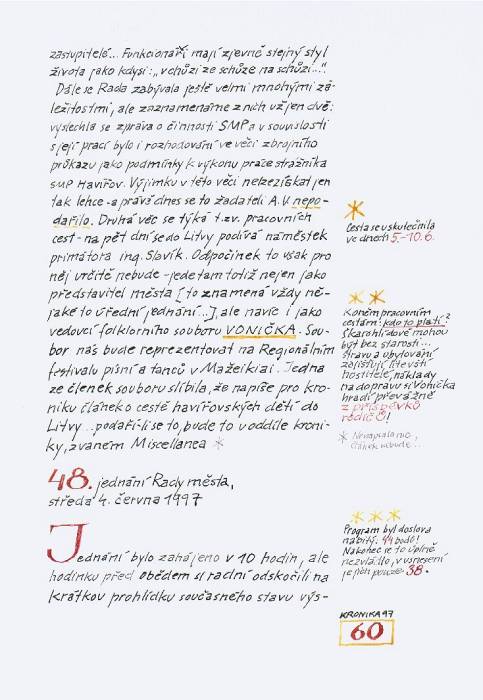 zastupitelé... Funkcionáři mají zjevně stejný styl
života jako kdysi: „v chůzi ze schůze na schůzi...".
Dále se Rada zabývala ještě velmi mnohými zá-
ležitostmi, ale zaznamenáme z nich už jen dvě:
vyslechla se zpráva o činnosti SMP a v souvislosti
s její prací bylo i rozhodování ve věci zbrojního
průkazu jako podmínky k výkonu práce strážníka
SMP Havířov. Výjimku v této věci nelze získat jen
tak lehce - a právě dnes se to žadateli A.V. nepo-
dařilo. Druhá věc se týká t.zv. pracovních
cest - na pět dní se do Litvy podívá náměstek
primátora ing. Slavík. Odpočinek to však pro
něj určitě nebude - jede tam totiž nejen jako
představitel města [to znamená vždy ně-
jaké to úřední jednání...], ale navíc i jako
vedoucí folklorního souboru VONIČKA. Sou-
bor nás bude reprezentovat na Regionálním
festivalu písní a tanců v Mažeikiai. Jedna
ze členek souboru slíbila, že napíše pro kro-
niku článek o cestě havířovských dětí do
Litvy.. podaří-li se to, bude to v oddíle kroni-
ky, zvaném Miscellanea *
48. jednání Rady města,
středa 4. června 1997
Jednání bylo zahájeno v 10 hodin, ale
hodinku před obědem si radní odskočili na
krátkou prohlídku současného stavu výs-
*
Cesta se uskutečnila
ve dnech 5.-10.6.
* *
Koněm pracovním
cestám: kdo to platí?
Škarohlídové mohou
být bez starostí...
Stravu a ubytování
zajišťují litevští
hostitelé, náklady
na dopravu si Vonička
hradí převážně
z příspěvků
rodičů!
* Nenapsala nic,
článek nebude...
* * *
Program byl doslova
nabitý. 44 bodů!
Nakonec se to úplně
nezvládlo, v usnesení
je jich pouze 38.
KRONIKA 97
60